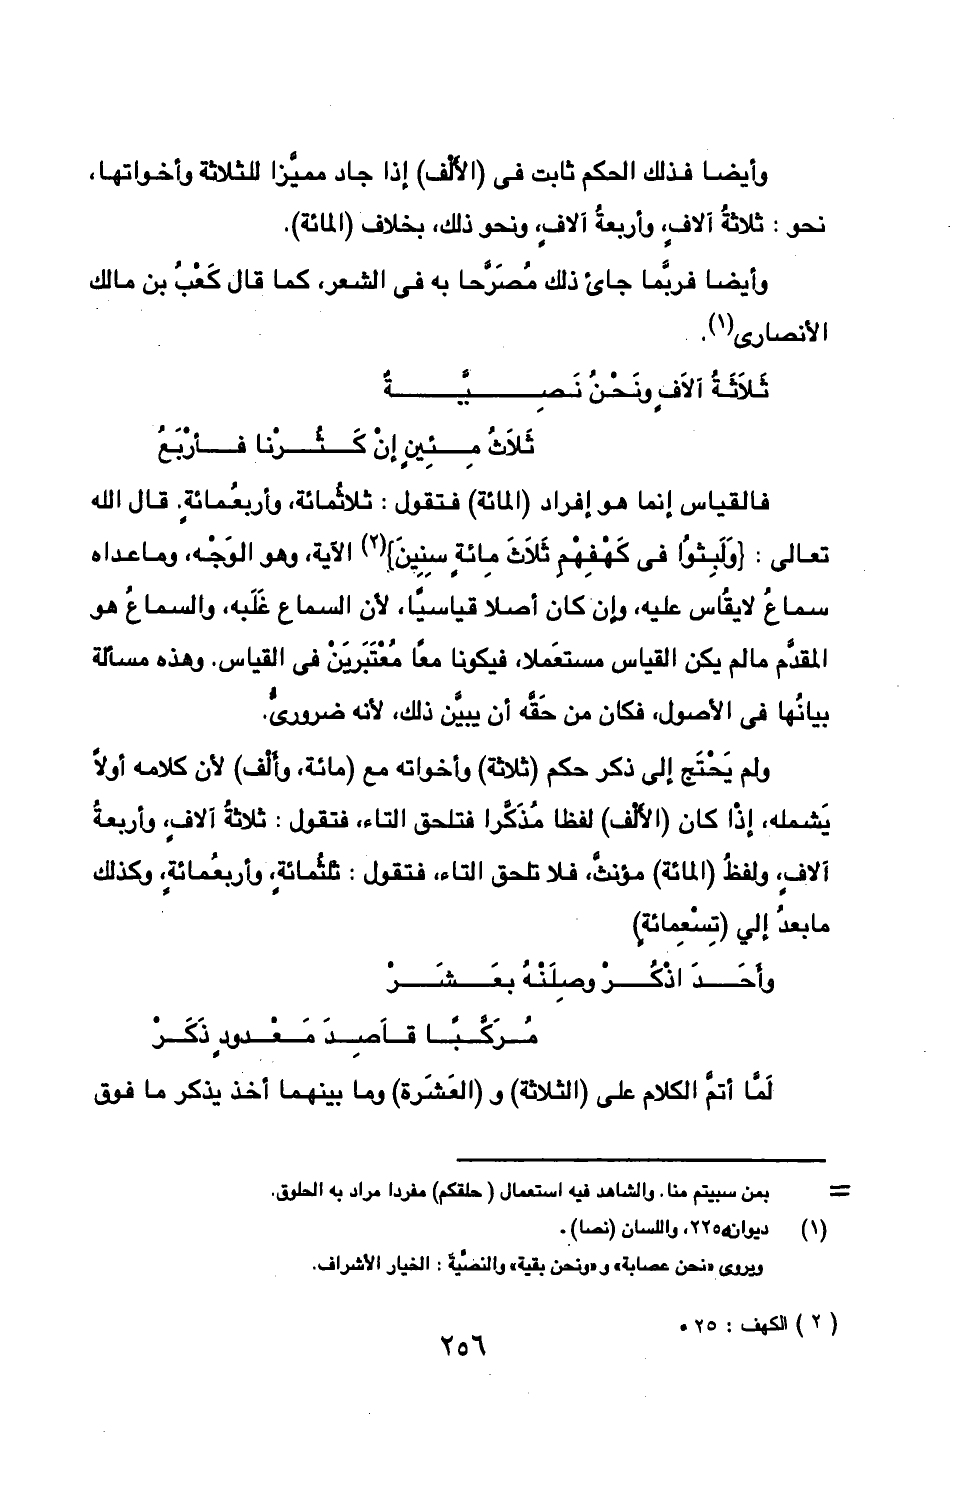 وأيضا فذلك الحكم ثابت فى (الأَلْف) إذا جاد مميَّزا للثلاثة وأخواتها،
نحو : ثلاثةُ آلافٍ، وأربعةُ آلافٍ، ونحو ذلك، بخلاف (المائة).
وأيضا فربمَّا جائ ذلك مُصَرَّحا به فى الشعر، كما قال كَعْبُ بن مالك
الأنصارى(١).
ثَلاَثَةُ آلاَفٍ ونَحْنُ نَصِيَّةٌ
ثَلاَثُ مِئِينٍ إنْ كَثُرْنا فأرْبَعُ
فالقياس إنما هو إفراد (المائة) فتقول : ثلاثُمائة، وأربعُمائةٍ. قال الله
تعالى : {وَلَبِثوُا فى كَهْفِهْمِ ثَلاَثَ مِائةٍ سِنِينَ}(٢) الآية، وهو الوَجْه، وماعداه
سماعُ لايقُاس عليه، وإن كان أصلا قياسيًّا، لأن السماع غَلَبه، والسماعُ هو
المقدَّم مالم يكن القياس مستعَملا، فيكونا معًا مُعْتَبَرَيَنْ فى القياس. وهذه مسألة
بيانُها فى الأصول، فكان من حَقَّه أن يبيَّن ذلك، لأنه ضرورىُّ.
ولم يَحْتَج إلى ذكر حكم (ثلاثة) وأخواته مع (مائة، وأَلْف) لأن كلامه أولاً
يَشمله، إذْا كان (الأَلْف) لفظا مُذَكَّرا فتلحق التاء، فتقول : ثلاثةُ آلافٍ، وأربعةُ
آلافٍ، ولفظُ (المائة) مؤنثُّ، فلا تلحق التاء، فتقول : ثلثُمائةٍ، وأربعُمائةٍ، وكذلك
مابعدُ إلي (تِسْعِمائةٍ)
وأَحَدَ اذْكُرْ وصِلَنْهُ بعَشَرْ
مُركَّبًا قاَصِدَ مَعْدودٍ ذَكَرْ
لَمَّا أتمَّ الكلام على (الثلاثة) و (العَشَرة) وما بينهما أخذ يذكر ما فوق
= بمن سبيتم منا. والشاهد فيه استعمال (حلقكم) مفردا مراد به الحلوق.
(١) ديوانه٢٢٥، واللسان (نصا).
ويروى «نحن عصابة» و «ونحن بقية» والنصَّية : الخيار الأشراف.
(٢) الكهف : ٢٥ .
٢٥٦